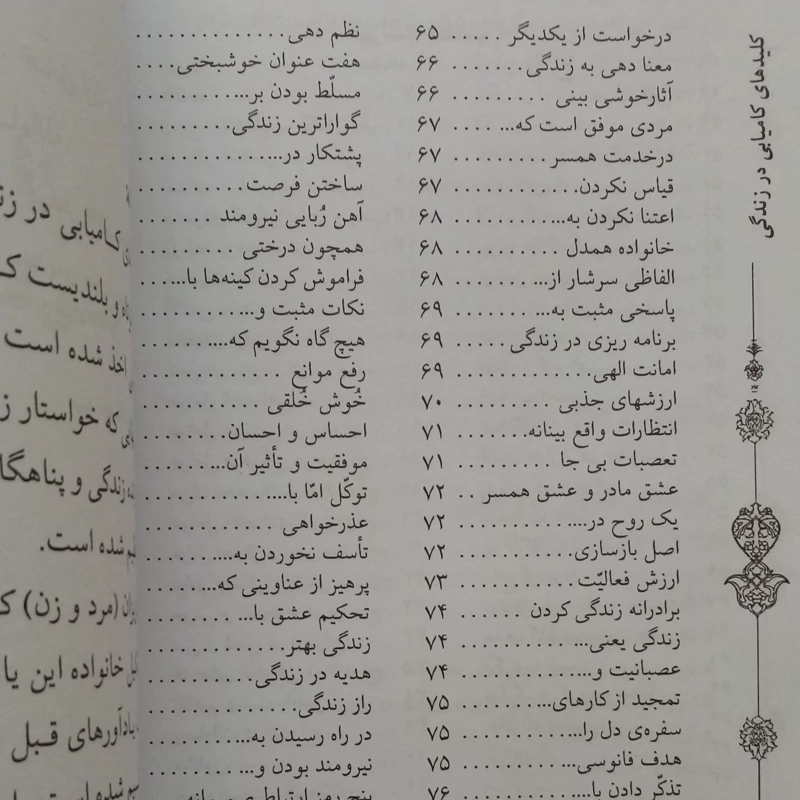 کلیدهای کامیابی در زندگی
درخواست از یکدیگر ..... ۶۵
معنا دهی به زندگی....... ۶۶
آثارخوشی بینی ......... ۶۶
مردی موفق است که... .... ۶۷
درخدمت همسر ......... ۶۷
قیاس نکردن............ ۶۷
اعتنا نکردن به............ ۶۸
خانواده همدل ......... ۶۸
الفاظی سرشار از......... ۶۸
پاسخی مثبت به......... ۶۹
برنامه ریزی در زندگی..... ۶۹
امانت الهی............. ۶۹
ارزشهای جذبی ........ ۷۰
انتظارات واقع بینانه....... ۷۱
تعصبات بی جا ........ ۷۱
عشق مادر و عشق همسر .. ۷۲
یک روح در........... ۷۲
اصل بازسازی.......... ۷۲
ارزش فعالیّت.......... ۷۳
برادرانه زندگی کردن ...... ۷۴
زندگی یعنی........... ۷۴
عصبانیت و........... ۷۴
تمجید از کارهای......... ۷۵
سفره‌ی دل را.......... ۷۵
هدف فانوسی.......... ۷۵
تذکّر دادن با........... ۷۶
نظم دهی..............
هفت عنوان خوشبختی....
مسلّط بودن بر...........
گواراترین زندگی.........
پشتکار در.............
ساختن فرصت..........
آهن رُبایی نیرومند .......
همچون درختی .........
فراموش کردن کینه‌ها با.....
نکات مثبت و...........
هیچ گاه نگویم که........
رفع موانع ............
خُوش خُلقی ...........
احساس و احسان.........
موفقیت و تأثیر آن........
توکّل امّا با............
عذرخواهی ...........
تأسف نخوردن به........
پرهیز از عناوینی که.......
تحکیم عشق با..........
زندگی بهتر............
هدیه در زندگی.........
راز زندگی............
در راه رسیدن به.........
نیرومند بودن و.........
کامیابی در
و بلندیست
اخذ شده است
که خواستار
زندگی و پناهگا
شده است.
(مرد و زن)
خانواده این یا
یادآورهای قبل